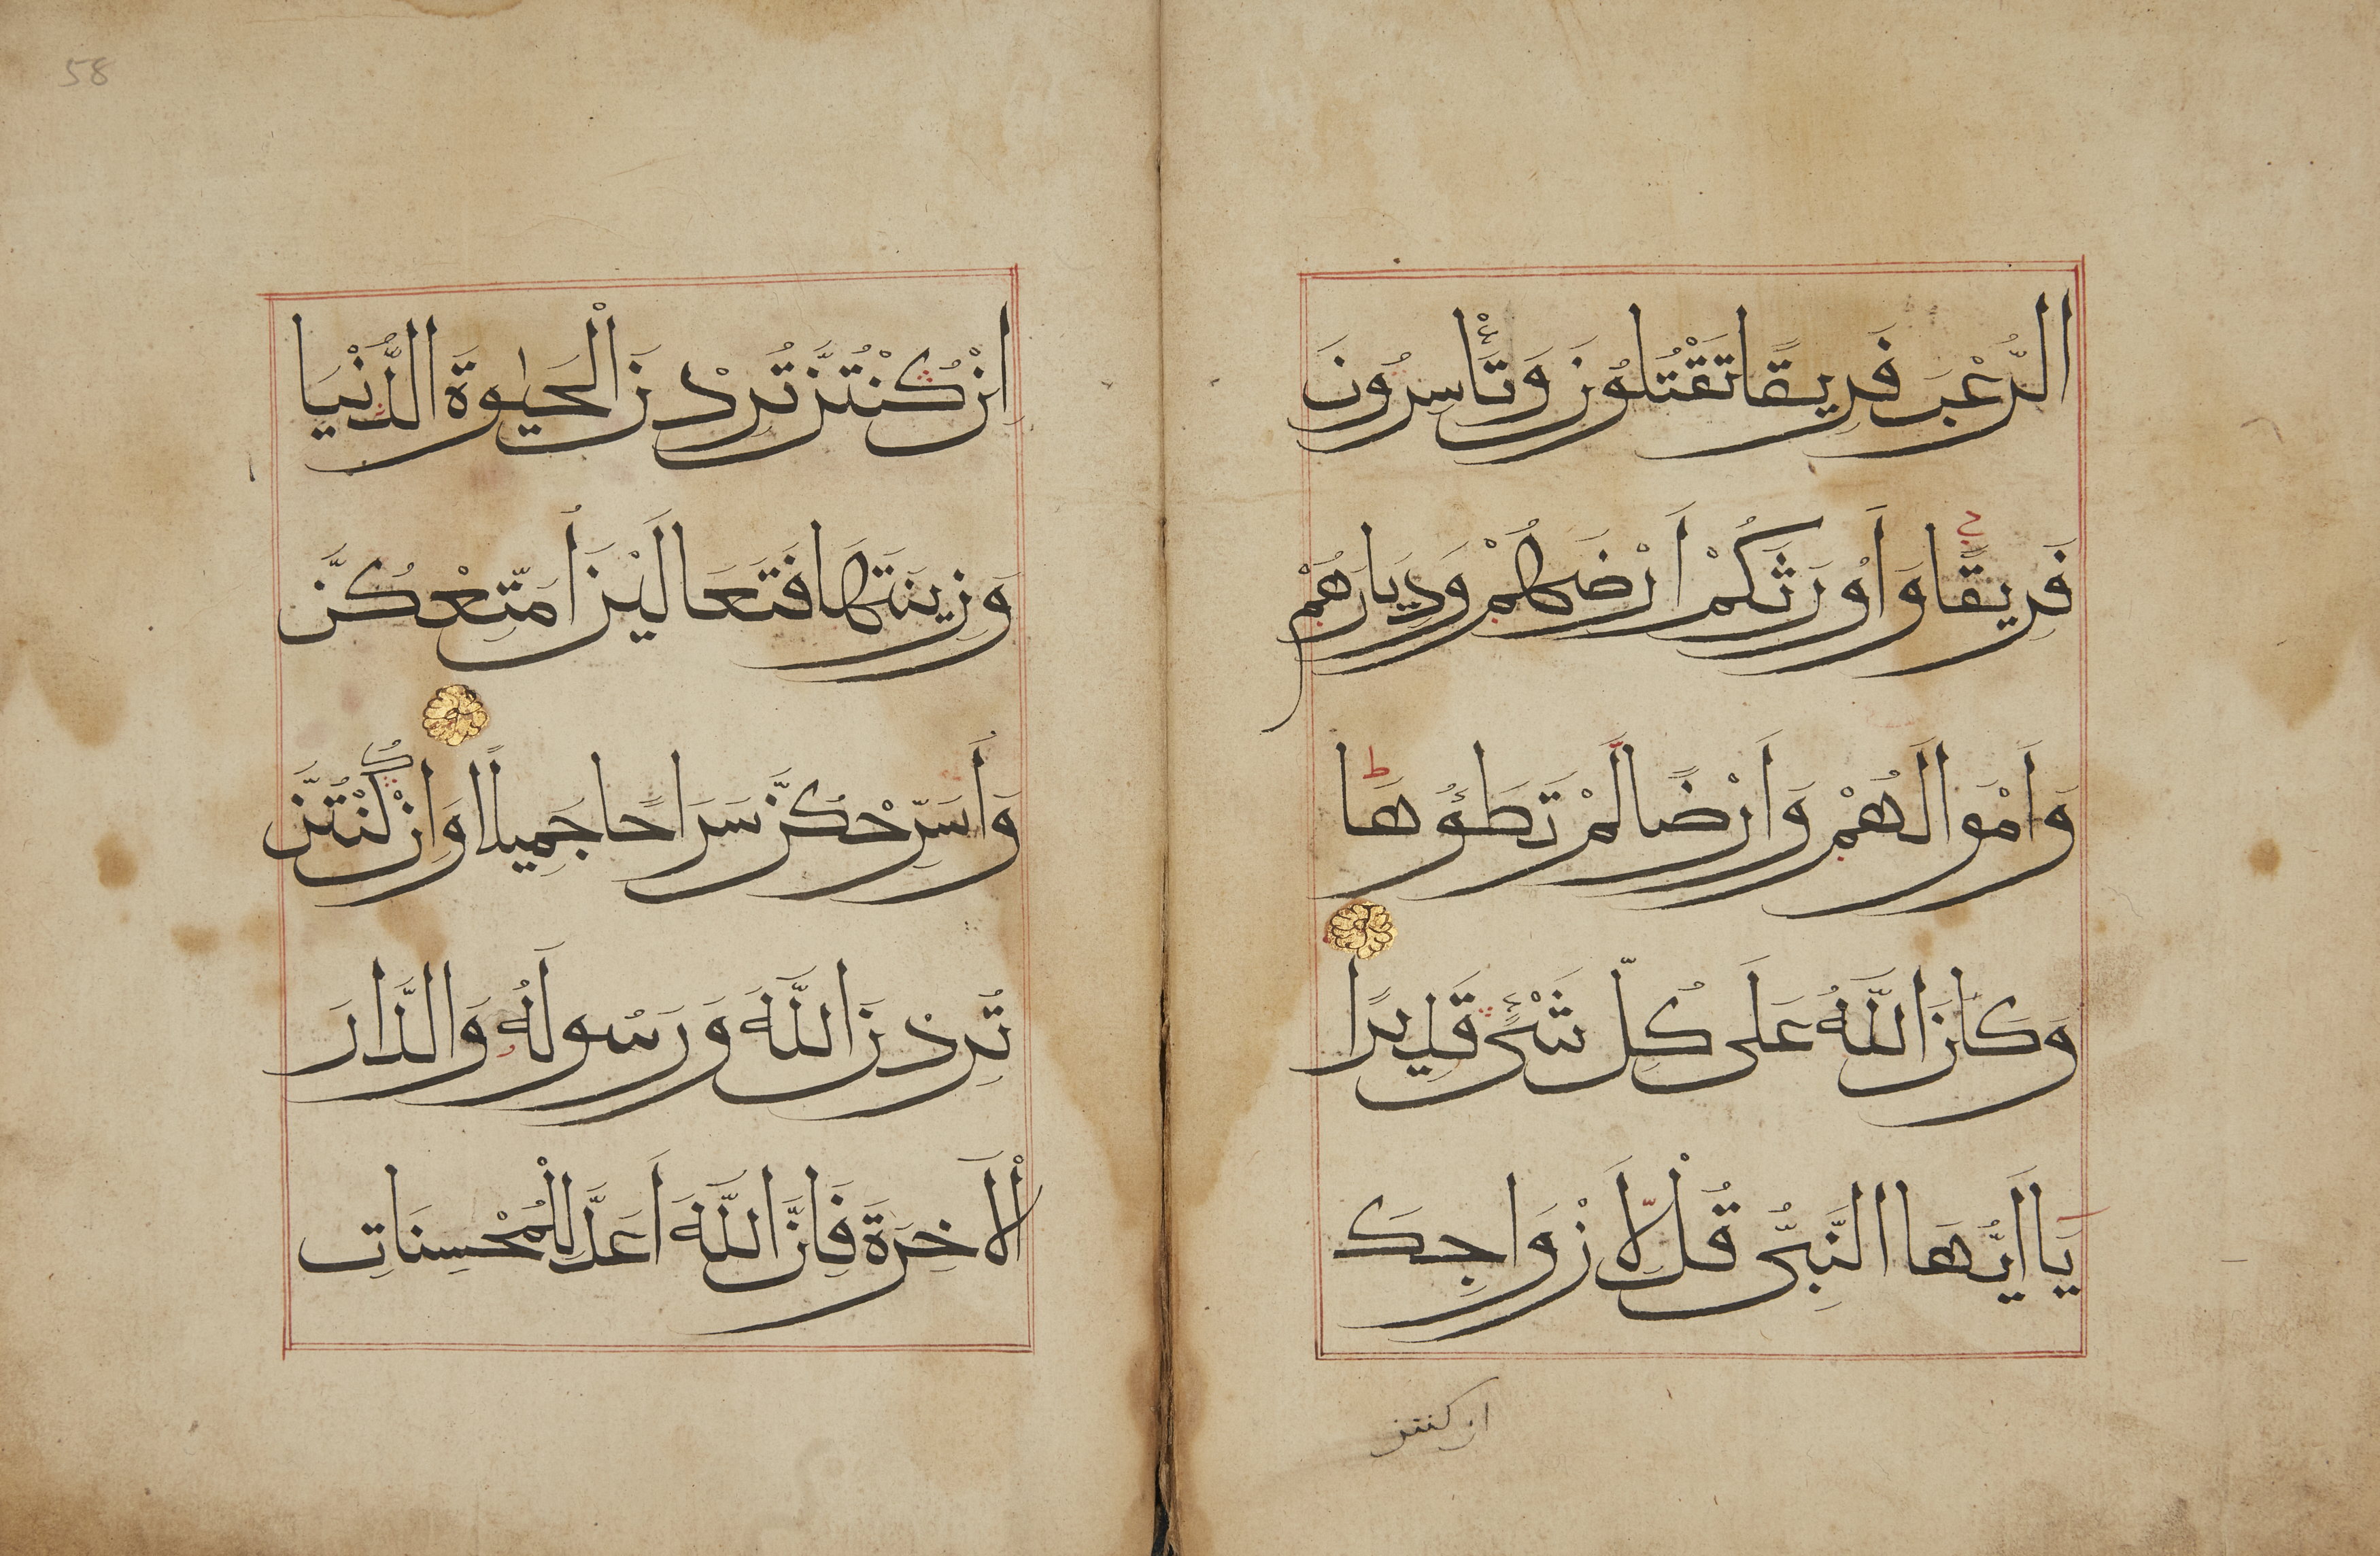 الرُّعْبَ فَرِيقًا تَقْتُلُونَ وَتَأْسِرُونَ
فَرِيقًا وَاَوْرَثَكُمْ اَرْضَهُمْ وَدِيَارَهُمْ
وَاَمْوَالَهُمْ وَاَرْضًا لَمْ تَطَؤُهَا ط
وَكَانَ اللَّهُ عَلَى كُلِّ شَيْءٍ قَدِيرًا
يَا اَيُّهَا النَّبِىُّ قُلْ لِاَزْوَاجِكَ
ان كنتن
58
اِنْ كُنْتُنَّ تُرِدْنَ الْحَيٰوةَ الدُّنْيَا
وَزِينَتَهَا فَتَعَالَيْنَ اُمَتِّعْكُنَّ
وَاُسَرِّحْكُنَّ سَرَاحًا جَمِيلًا وَاِنْ كُنْتُنَّ
تُرِدْنَ اللَّهَ وَرَسُولَهُ وَالدَّارَ
الْاَخِرَةَ فَاِنَّ اللَّهَ اَعَدَّ لِلْمُحْسِنَاتِ